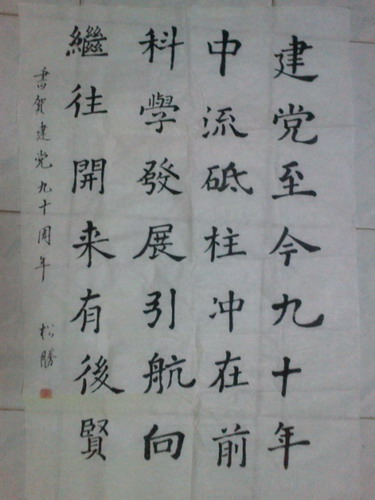 建党至今九十年
中流砥柱冲在前
科學發展引航向
繼往開来有後賢
書賀建党九十周年 松勝